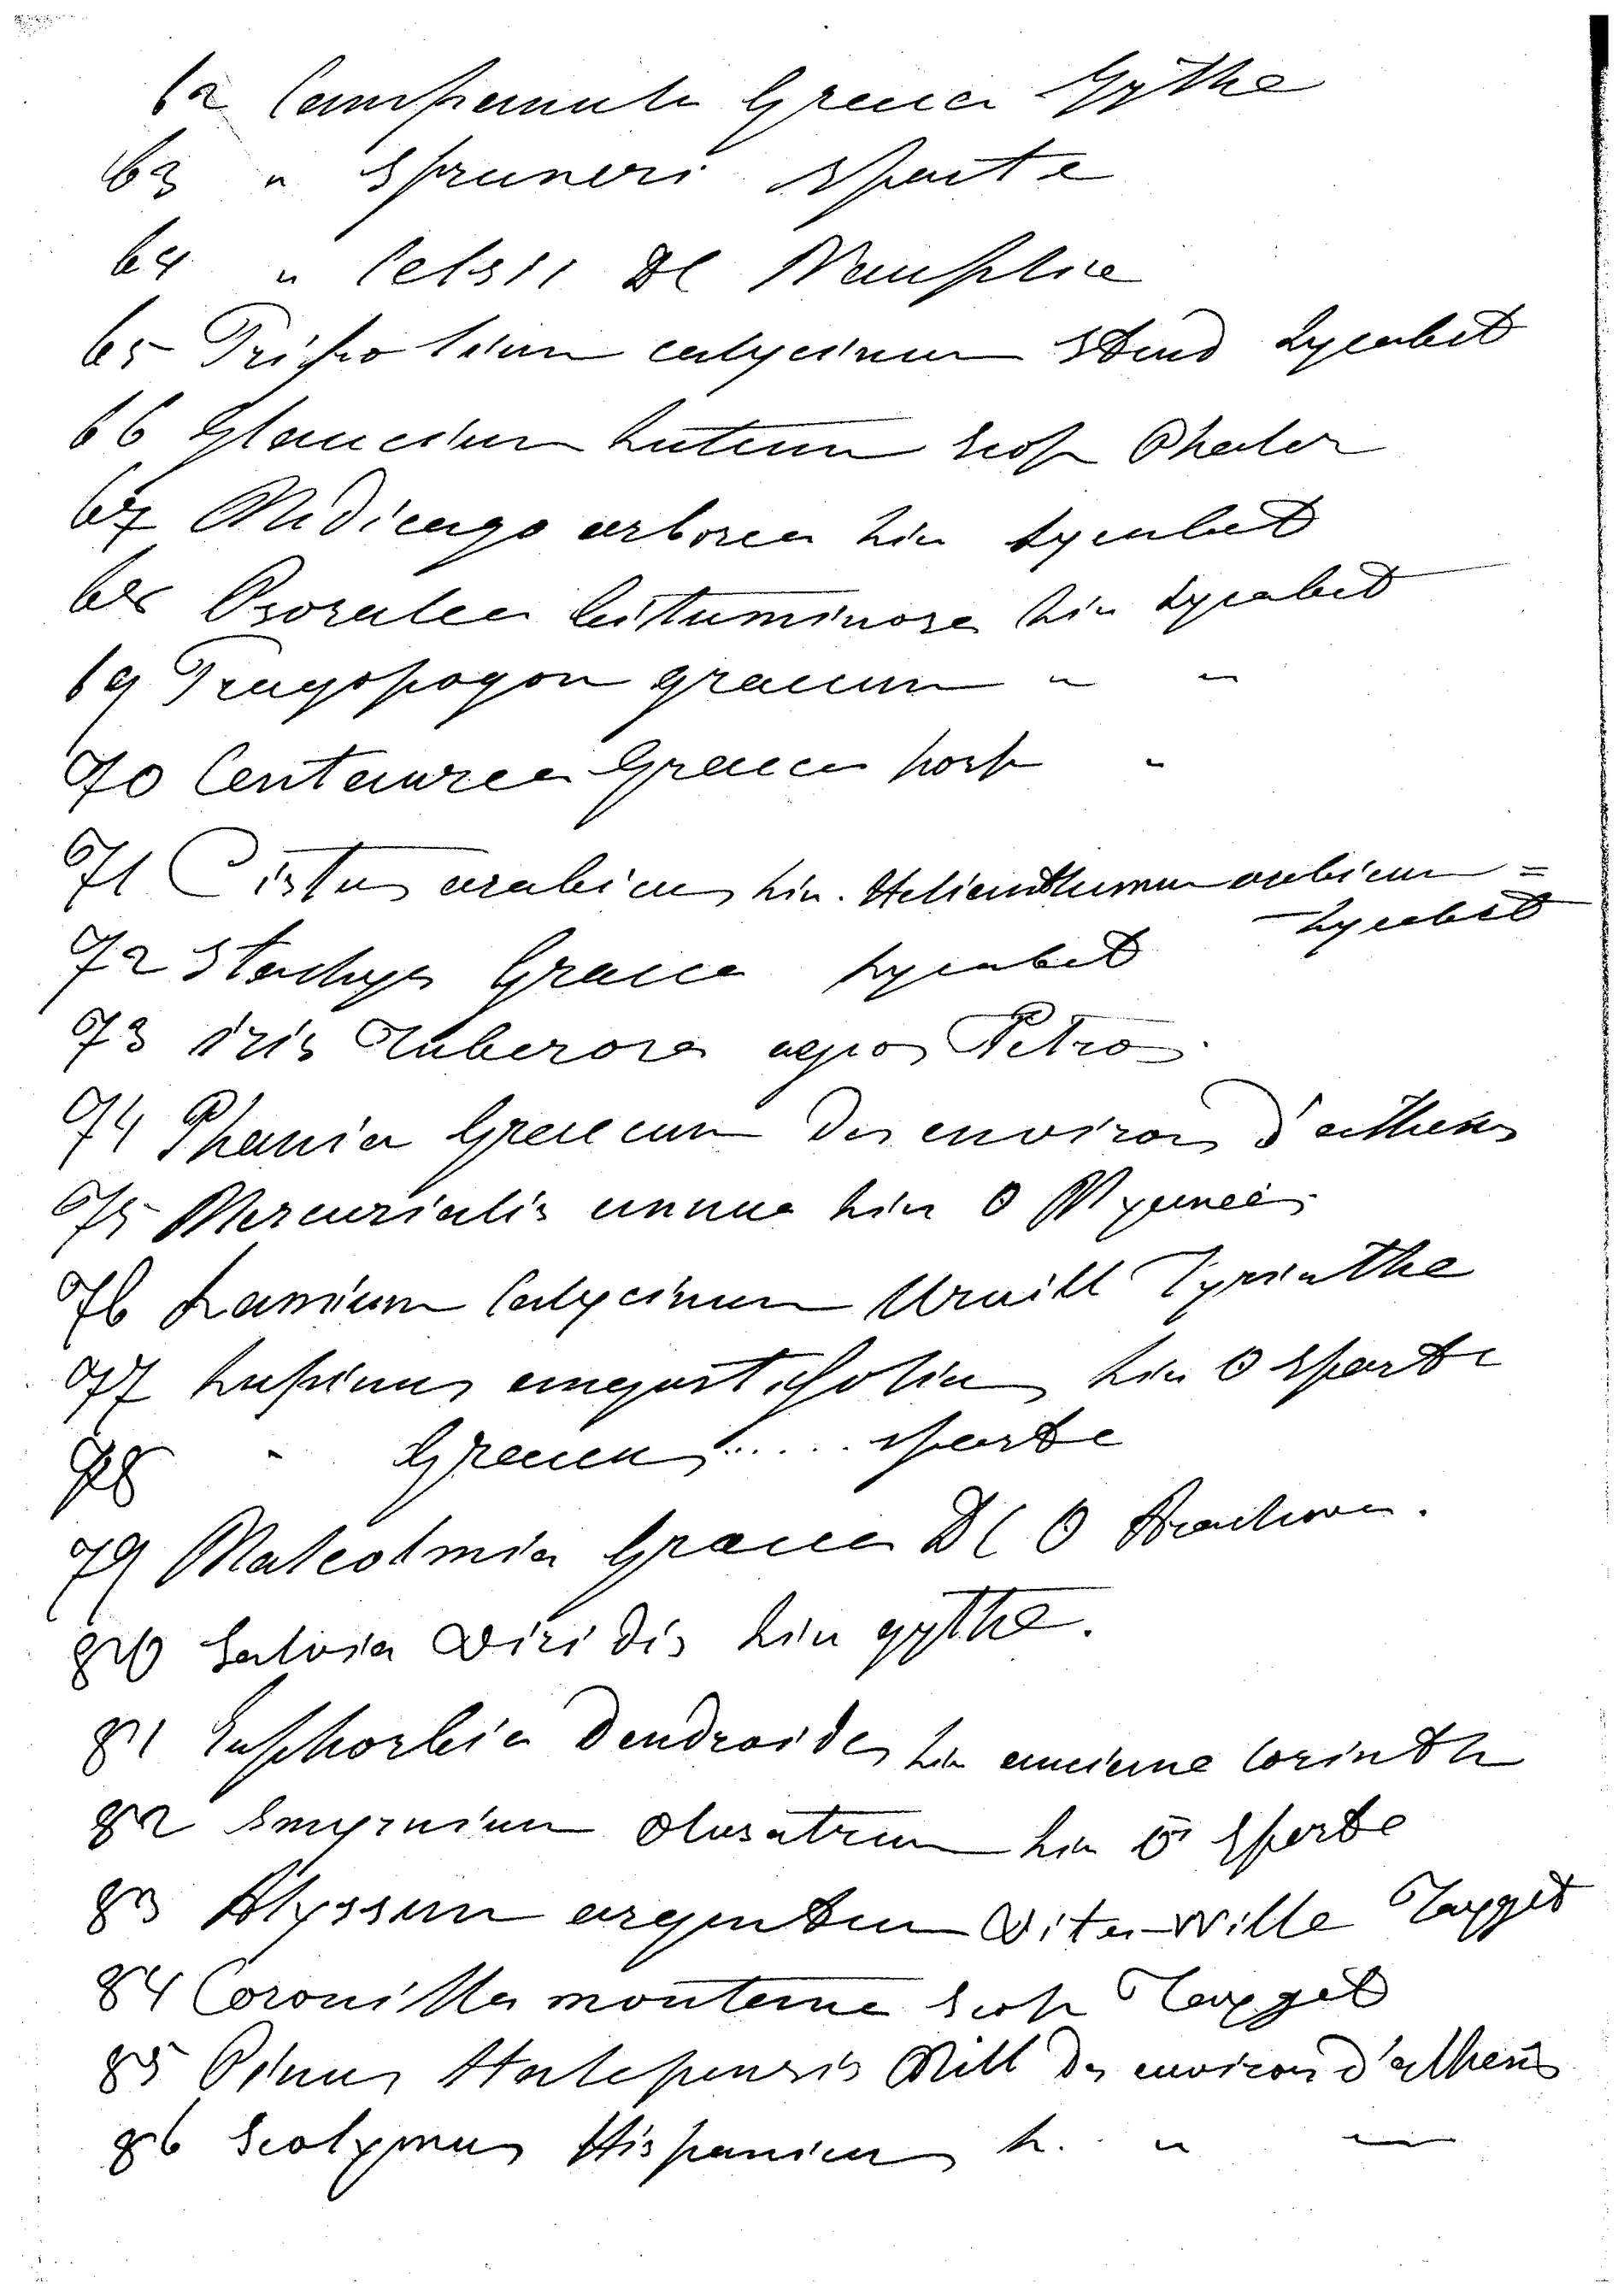 62 Campanula Graeca Gythe
63 " Spruneri Sparte
64 " Celsii DC Nauplie
65 Trifolium calycinum Lycabet
66 Glaucium Luteum Scop Phaler
67 Medicago arborea Lin Lycabet
68 Psoralea bituminosa Lin Lycabet
69 Tragopogon graecum " "
70 Centaurea Graeca "
71 Cistus arabicus Lin. Helianthumum arabicum =
Lycabet
72 Stachys Graeca Lycabet
73 iris Tuberosa agios Petros
74 Graecum des environs d'athens
75 Mercurialis annua Lin O Mycunes
76 Lamium Calycinum Urvill Tyrinthe
77 Lupinus angustifolius Lin O Sparte
78 " Graecus ..... sparte
79 Malcolmia Graeca DC O Arachova.
80 Salvia Viridis Lin gythe.
81 Euphorbia Dendroides Lin ancienne Corinth
82 Smyrnium Olusatrum Lin Sparte
83 Alyssum argenteum Tayget
84 Coronilla montana Scop Taygat
85 Pinus Halepensis Mill des environs d'athens
86 Scolymus Hispanicus L. " "